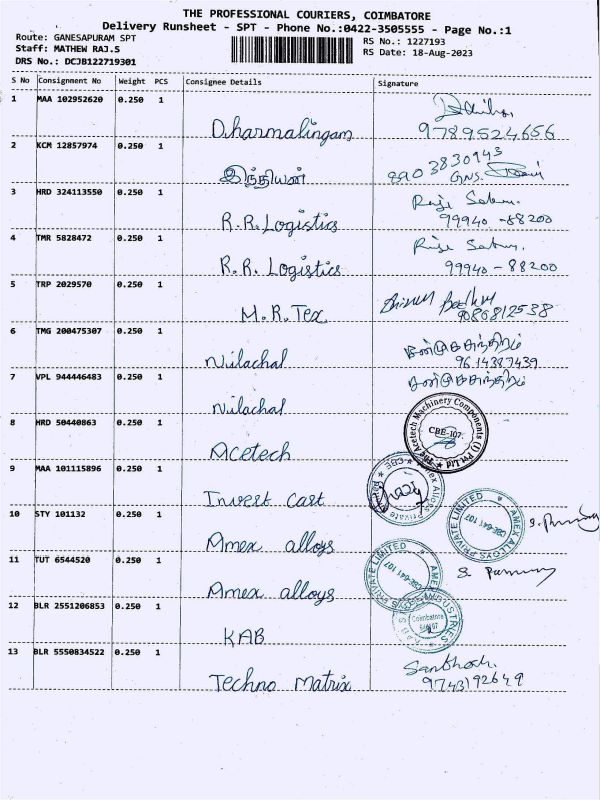 THE PROFESSIONAL COURIERS, COIMBATORE
Delivery Runsheet - SPT - Phone No.:0422-3505555 - Page No.:1
Route: GANESAPURAM SPT
RS No.: 1227193
Staff: MATHEW RAJ.S
RS Date: 18-Aug-2023
DRS No.: DCJB122719301
S No Consignment No Weight PCS Consignee Details Signature
1 MAA 102952620 0.250 1
Dharmalingam 9789524656
2 KCM 12857974 0.250 1
இந்தியன் 8903830943
G.N.S.
3 HRD 324113550 0.250 1
R.R. Logistics 99940 - 88200
4 TMR 5828472 0.250 1
R.R. Logistics 99940 - 88200
5 TRP 2029570 0.250 1
M.R. Tex 9086812538
6 TMG 200475307 0.250 1
Nilachal 9614387439
7 VPL 944446483 0.250 1
Nilachal
8 HRD 50440863 0.250 1
Acetech
The Acetech Machinery Components (I) Pvt Ltd
CBE-107.
9 MAA 101115896 0.250 1
Invest cast
10 STY 101132 0.250 1
Amex alloys
AMEX ALLOYS PRIVATE LIMITED
CBE-641 107
11 TUT 6544520 0.250 1
Amex alloys
PRIVATE LIMITED
CBE-641 107
12 BLR 2551206853 0.250 1
KAB
KAB INDUSTRIES
Coimbatore
13 BLR 5550834522 0.250 1
Techno Matrix 9743192649